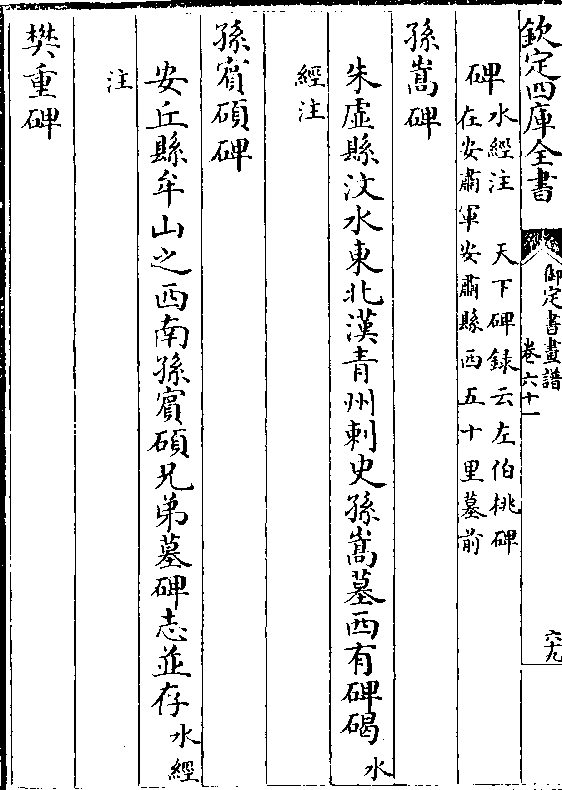 欽定四庫全書
御定書畫譜
卷六十一
六九
碑水經注 天下碑錄云左伯桃碑
在安肅軍安肅縣西五十里墓前
孫嵩碑
朱虛縣汶水東北漢青州刺史孫嵩墓西有碑碣水
經注
孫賓碩碑
安丘縣牟山之西南孫賓碩兄弟墓碑志並存水經
注
樊重碑